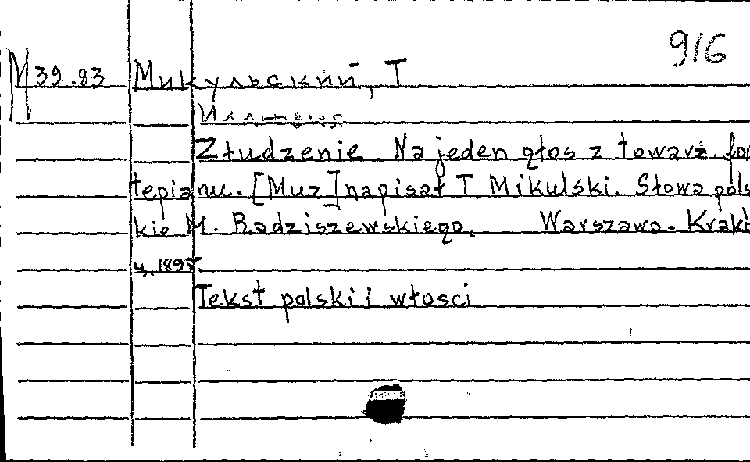 916
М 39.83 Микульский, Т
Złudzenie. Na jeden głos z towarz. for
tepianu. [Muz] napisał T Mikulski. Słowa pols
kie M. Radziszewskiego. Warszawa. Krak
ц. 1895.
Tekst polski i włosci